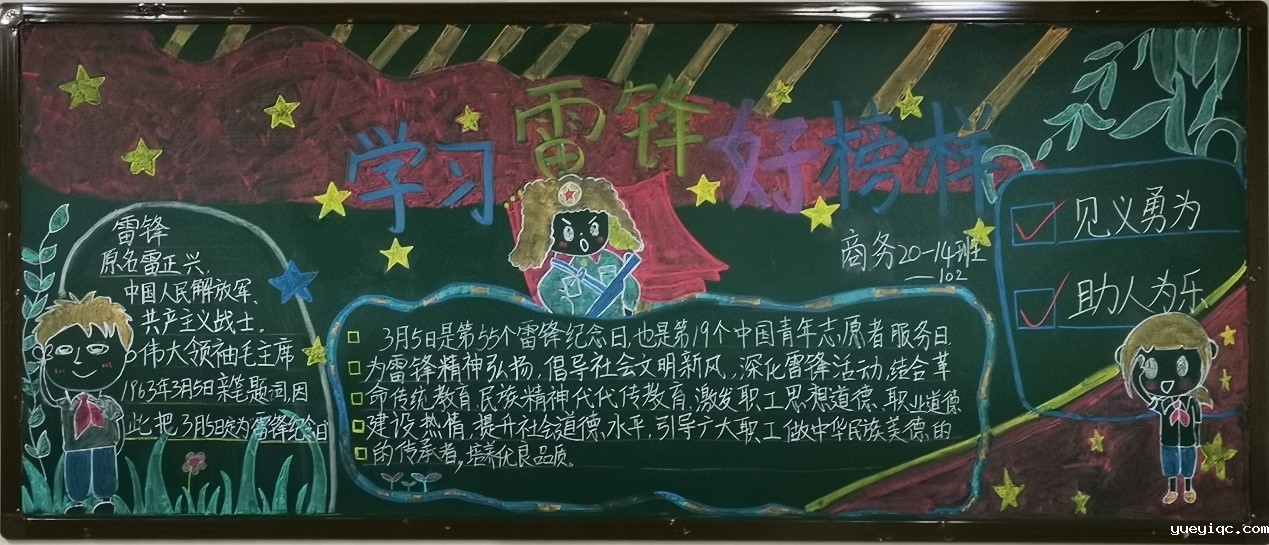 学习雷锋好榜样
雷锋
原名雷正兴,
中国人民解放军、
共产主义战士,
伟大领袖毛主席
1963年3月5日亲笔题词,因
此把3月5日定为"雷锋纪念日"
商务20-14班
—102
见义勇为
助人为乐
3月5日是第55个雷锋纪念日,也是第19个中国青年志愿者服务日
为雷锋精神弘扬,倡导社会文明新风,深化雷锋活动,结合革
命传统教育,民族精神代代传教育,激发职工思想道德、职业道德
建设热情,提升社会道德水平,引导广大职工做中华民族美德的
的传承者,培养优良品质。
yueyiqc.com